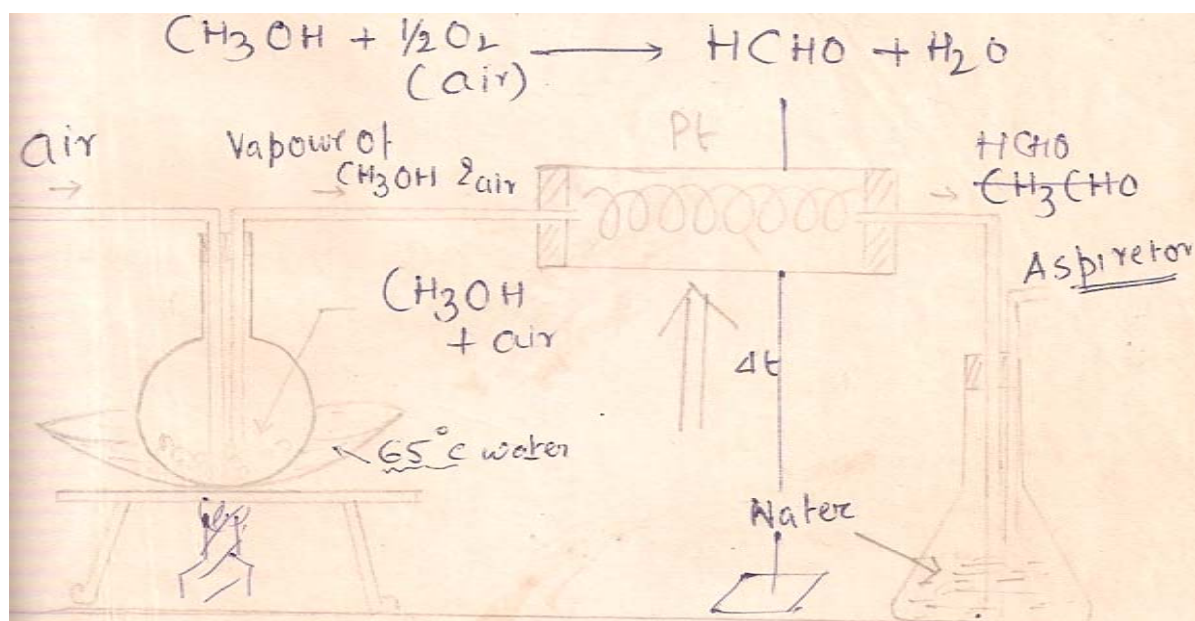 CH3OH + ½O2 ⟶ HCHO + H2O
(air)
air
Vapour of
CH3OH & air
Pt
HCHO
CH3CHO
Aspiretor
CH3OH
+ air
Δt
65°C water
Water